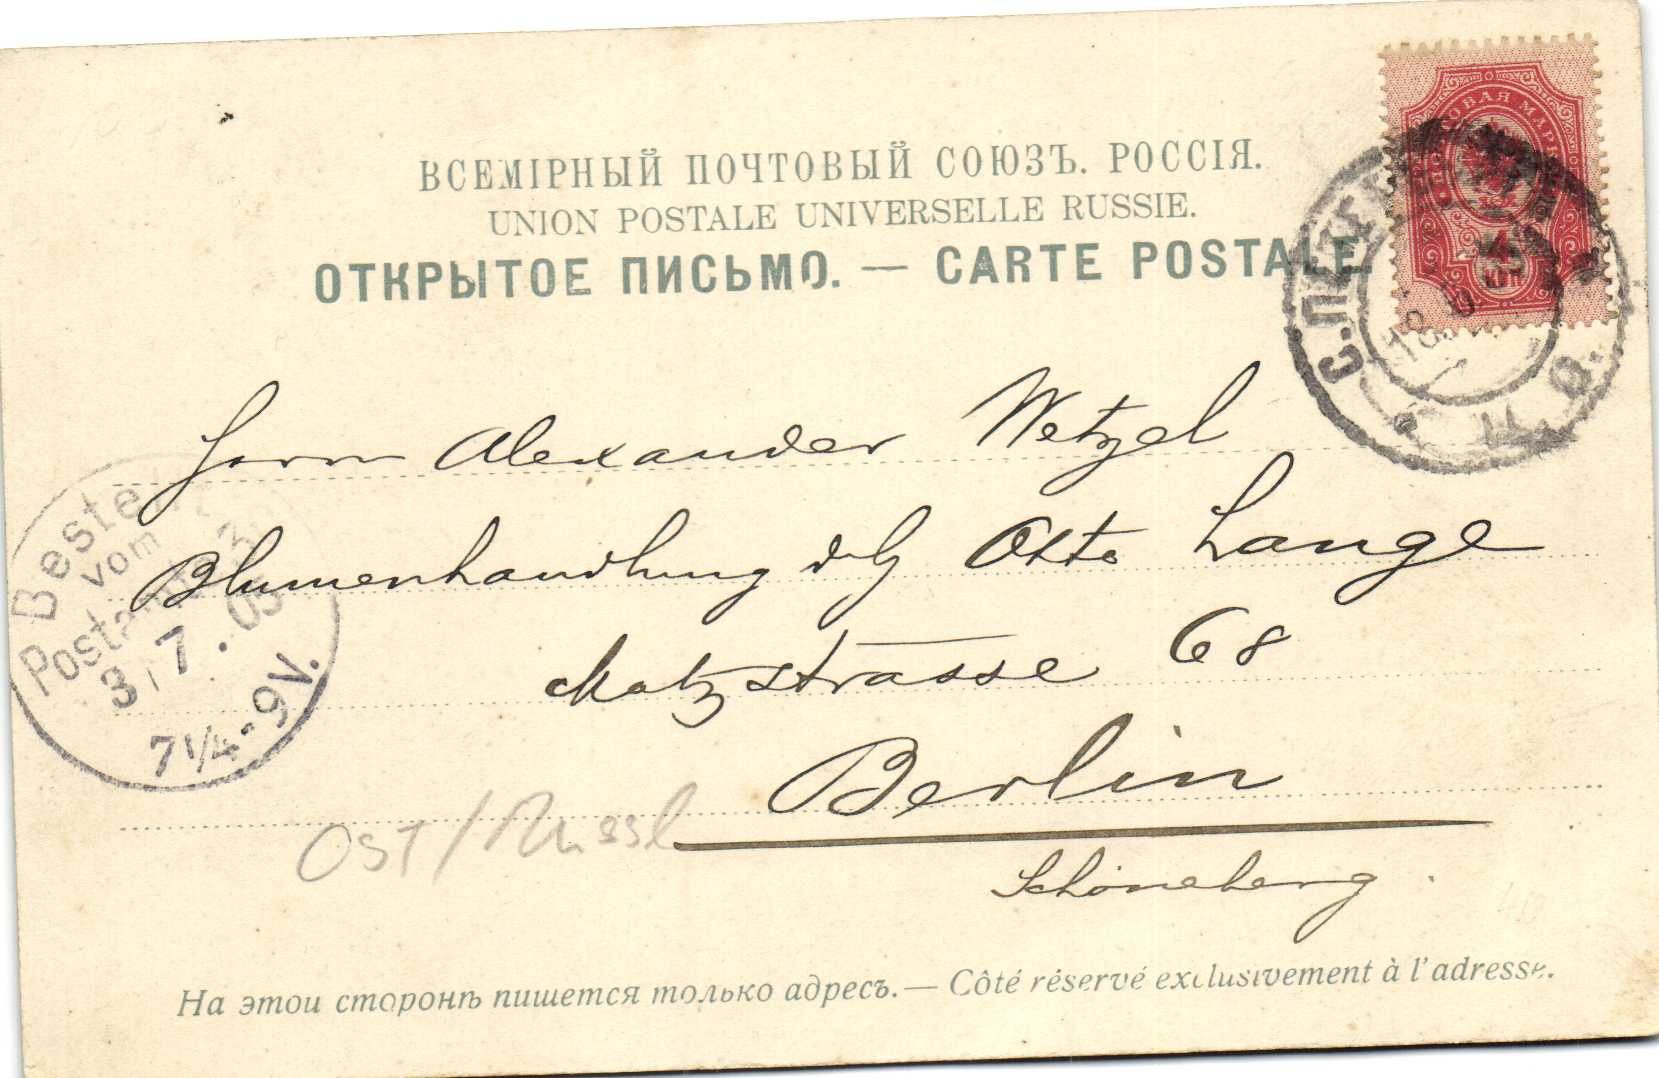 ВСЕМІРНЫЙ ПОЧТОВЫЙ СОЮЗЪ. РОССІЯ.
UNION POSTALE UNIVERSELLE RUSSIE.
ОТКРЫТОЕ ПИСЬМО. — CARTE POSTALE.
ПОЧТОВАЯ МАРКА
4
С.ПЕТЕР
Herrn Alexander Wetzel
Blumenhandlung Otto Lange
Motzstrasse 68
Berlin
Schöneberg.
Bestellt
vom
Postamt
3.7.05
7 1/4-9V.
Ost/Russl
На этой сторонѣ пишется только адресъ.— Côté réservé exclusivement à l'adresse.